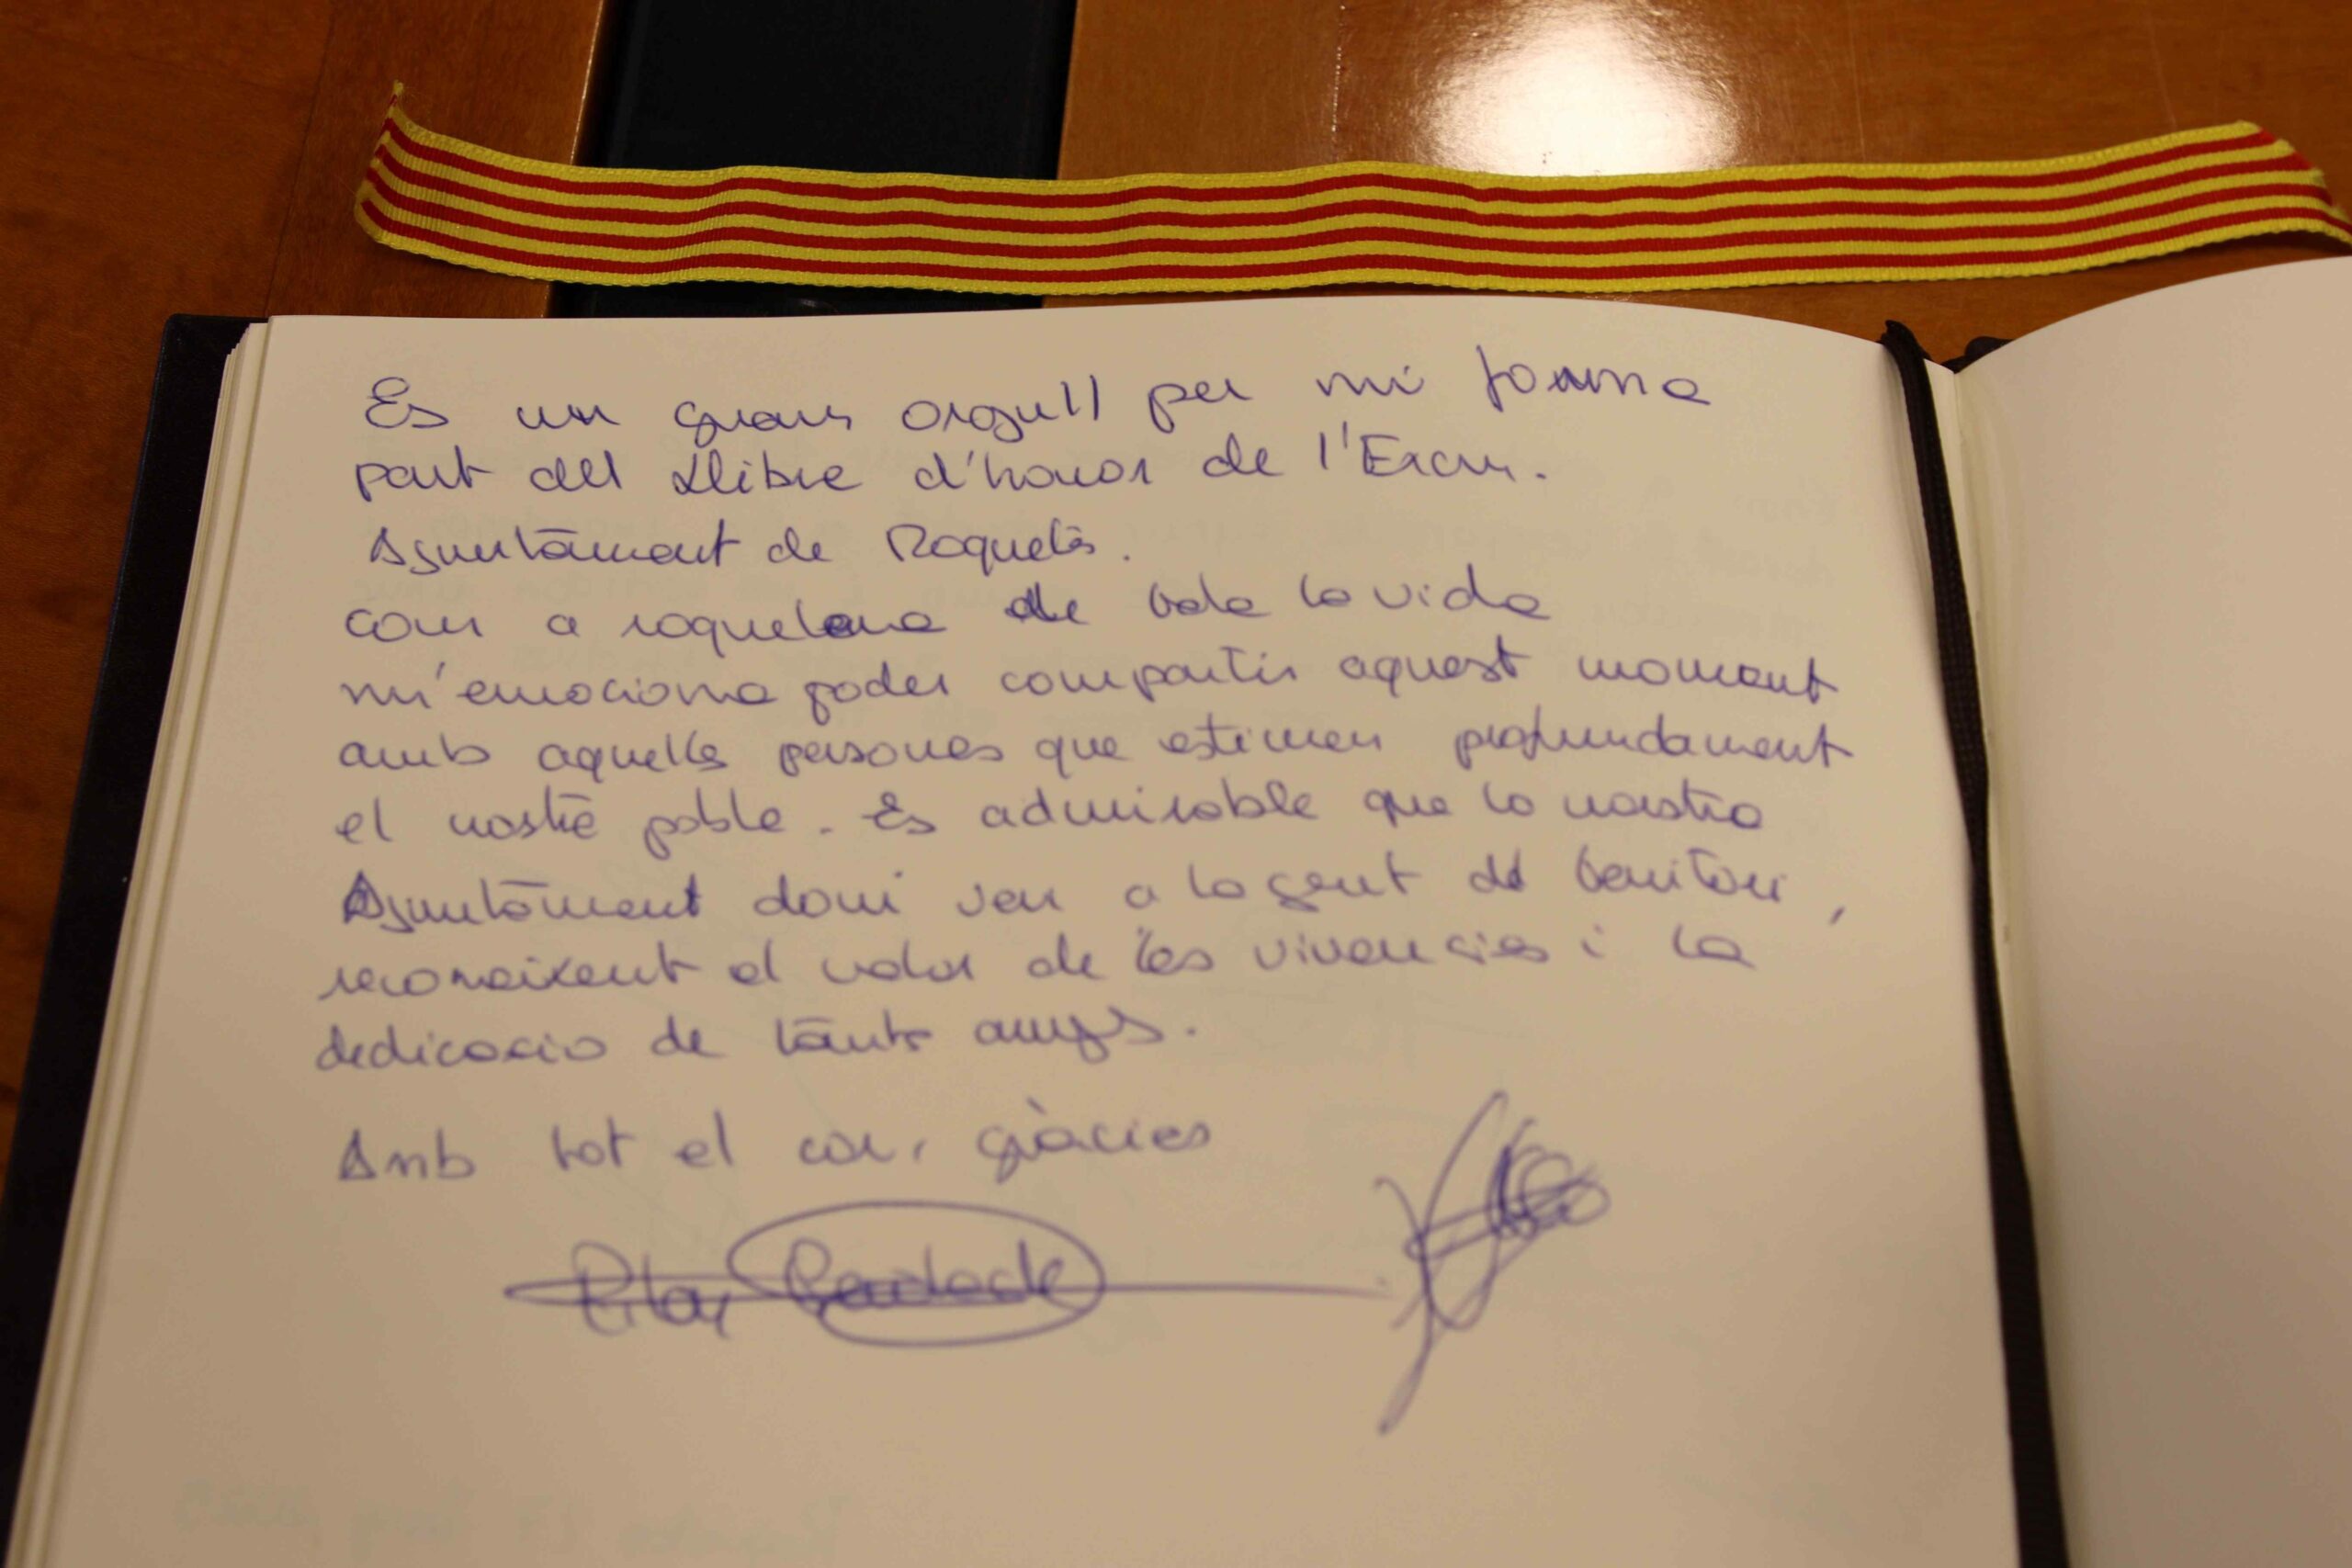 Es un gran orgull per mi forma
part del Llibre d'honor de l'Excm.
Ajuntament de Roquetes.
com a roquetenca de tota la vida
m'emociona poder compartir aquest moment
amb aquelles persones que estimen profundament
el nostre poble. Es admirable que lo nostre
Ajuntament doni veu a la gent del territori,
reconeixent el valor de les vivencies i la
dedicacio de tants anys.
Amb tot el cor, gràcies
Pilar